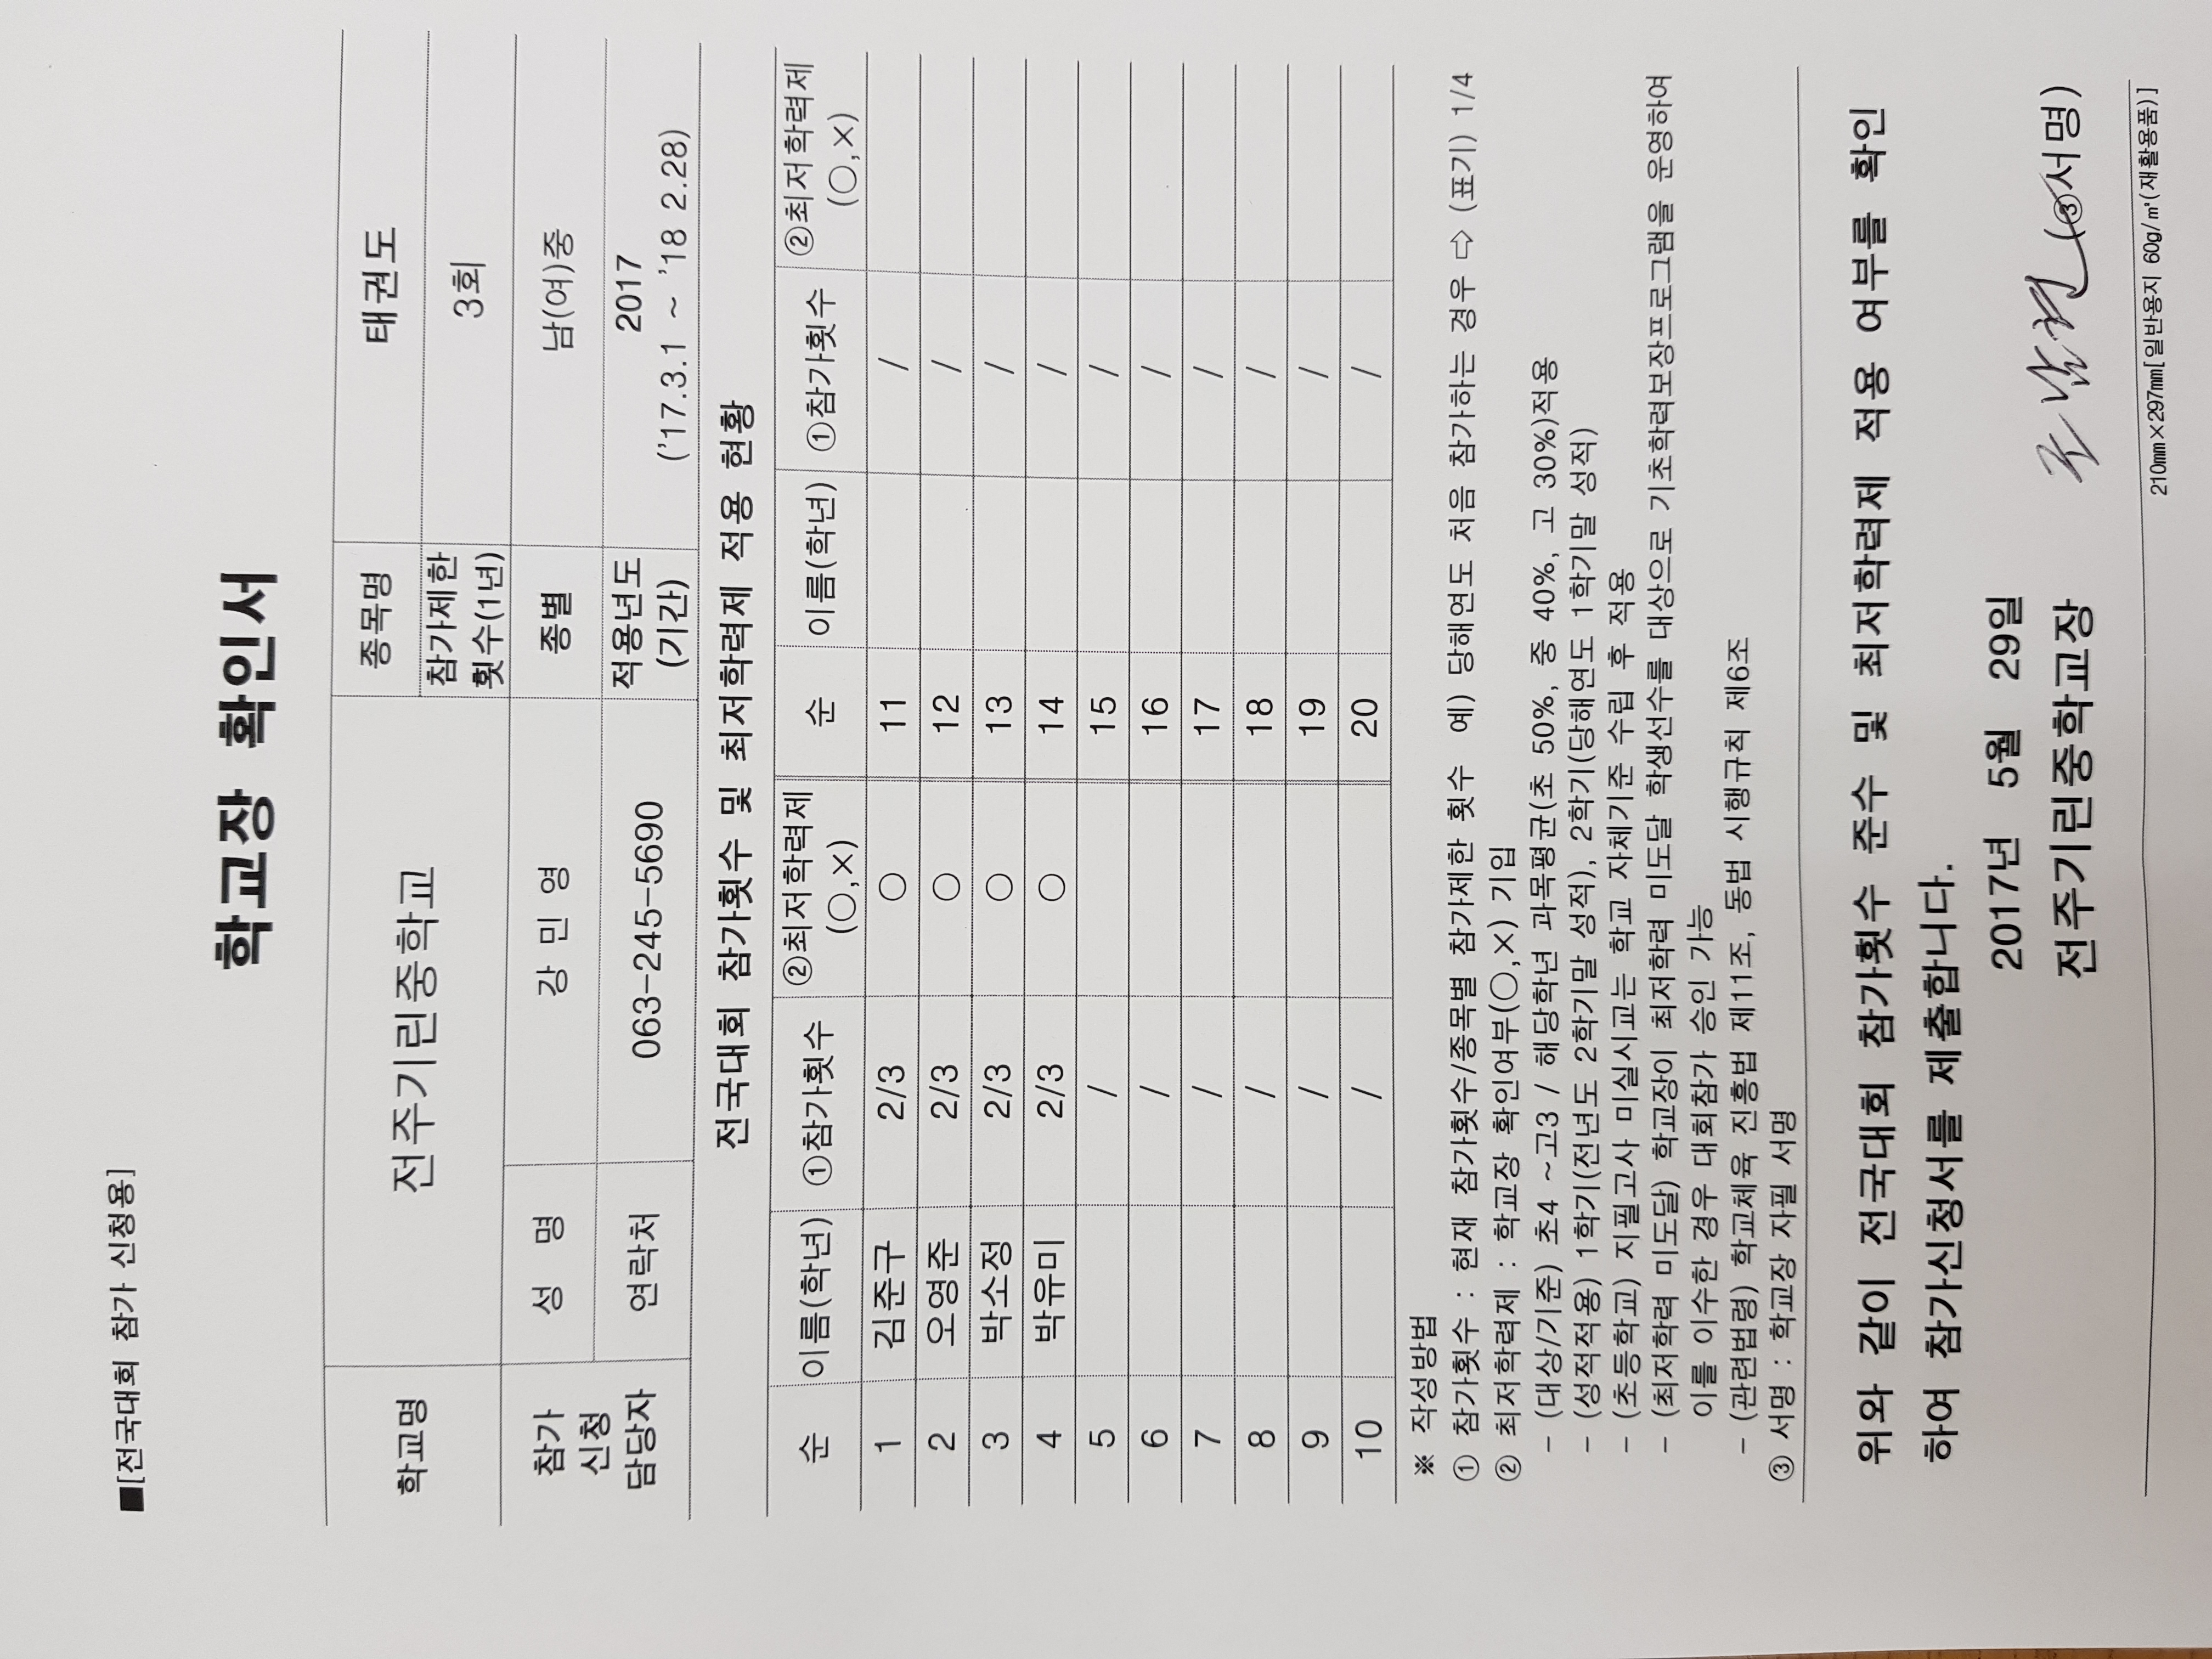 ■[전국대회 참가 신청용]
학교장 확인서
학교명 전주기린중학교 종목명 태권도
참가제한 횟수(1년) 3회
참가 신청 담당자 성 명 강 민 영 종별 남(여)중
연락처 063-245-5690 적용년도 (기간) 2017 ('17.3.1 ~ '18 2.28)
전국대회 참가횟수 및 최저학력제 적용 현황
순 이름(학년) ①참가횟수 ②최저학력제 (○,×) 순 이름(학년) ①참가횟수 ②최저학력제 (○,×)
1 김준구 2/3 ○ 11 /
2 오영준 2/3 ○ 12 /
3 박소정 2/3 ○ 13 /
4 박유미 2/3 ○ 14 /
5 / 15 /
6 / 16 /
7 / 17 /
8 / 18 /
9 / 19 /
10 / 20 /
※ 작성방법
① 참가횟수 : 현재 참가횟수/종목별 참가제한 횟수 예) 당해연도 처음 참가하는 경우 ⇨ (표기) 1/4
② 최저학력제 : 학교장 확인여부(○,×) 기입
- (대상/기준) 초4 ~고3 / 해당학년 과목평균(초 50%, 중 40%, 고 30%)적용
- (성적적용) 1학기(전년도 2학기말 성적), 2학기(당해연도 1학기말 성적)
- (초등학교) 지필고사 미실시교는 학교 자체기준 수립 후 적용
- (최저학력 미도달) 학교장이 최저학력 미도달 학생선수를 대상으로 기초학력보장프로그램을 운영하여
이를 이수한 경우 대회참가 승인 가능
- (관련법령) 학교체육 진흥법 제11조, 동법 시행규칙 제6조
③ 서명 : 학교장 자필 서명
위와 같이 전국대회 참가횟수 준수 및 최저학력제 적용 여부를 확인
하여 참가신청서를 제출합니다.
2017년 5월 29일
전주기린중학교장 (③서명)
210㎜×297㎜[일반용지 60g/㎡(재활용품)]